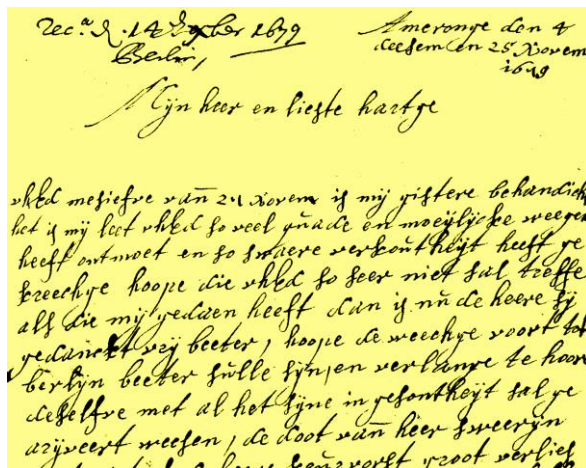 Rec.a d. 14 Xber 1679 Ameronge den 4
Berlin, deesem en 25 Novem
1679
Mijn heer en liefste hartge
uhEd mesiefve vann 21 Novem is mij gistere behandicht
het is mij leet uhEd so veel quade en moeijlijcke weegen
heeft ontmoet en so swaere verkoutheijt heeft ge
kreechge hoope die uhEd so seer niet sal treffe
als die mij gedaen heeft dan is nu de heere sij
gedanckt vrij beeter, hoope de weechge voort tot
berlijn beeter sulle sijn, en verlange te hoor
deselfve met al het sijne in gesontheijt sal ge
arijveert weesen, de doot vann heer sweerijn
keurvorst groot verlies